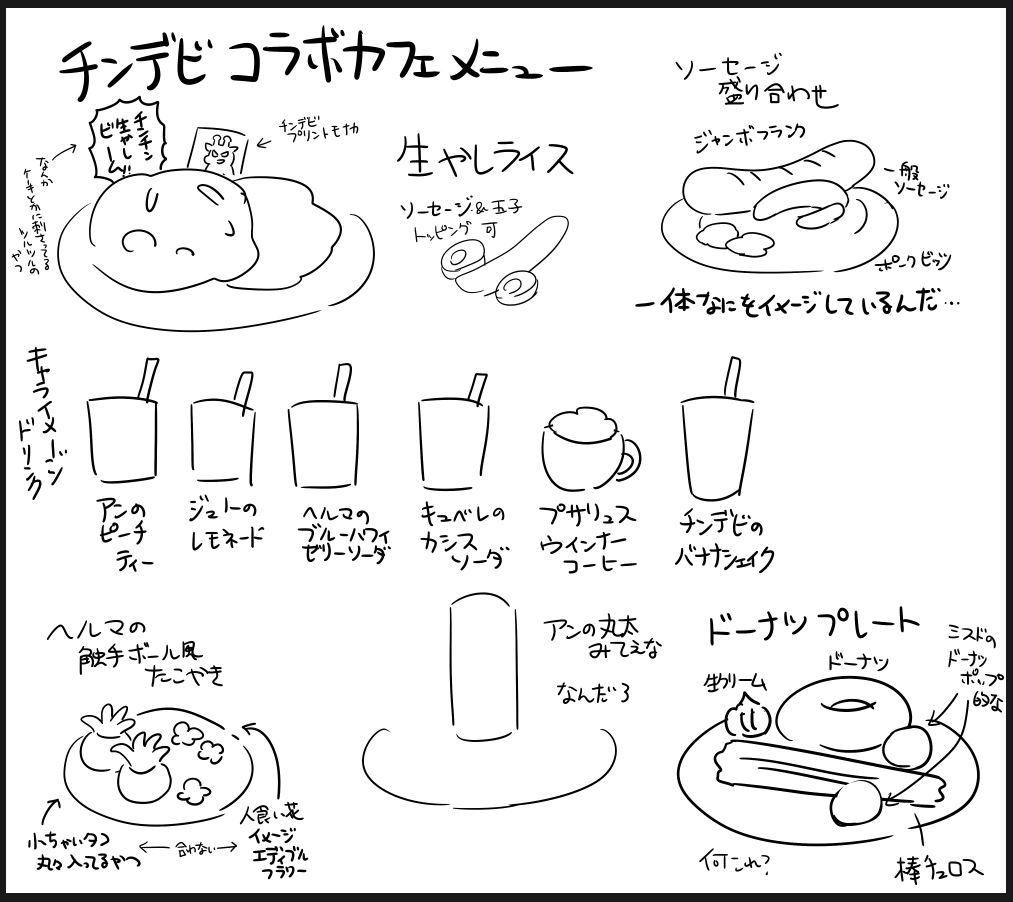 チンデビ コラボカフェメニュー
チンチン
生やし
ビーーん!!
なんか
ケーキとかに刺さってる
ツルツルの
やつ
チンデビ
プリントモナカ
生やしライス
ソーセージ&玉子
トッピング可
ソーセージ
盛り合わせ
ジャンボフランク
一般
ソーセージ
ポークビッツ
一体なにをイメージしているんだ…
キャライメージ
ドリンク
アンの
ピーチ
ティー
ジュトーの
レモネード
ヘルマの
ブルーハワイ
ゼリーソーダ
キュベレの
カシス
ソーダ
プサリュス
ウインナー
コーヒー
チンデビの
バナナシェイク
ヘルマの
触手ボール風
たこやき
小ちゃいタコ
丸々入ってるやつ
合わない
人食い花
イメージ
エディブル
フラワー
アンの丸太
みてえな
なんだろ
ドーナツプレート
生クリーム
ドーナツ
ミスドの
ドーナツ
ポップ
的な
何これ?
棒チュロス